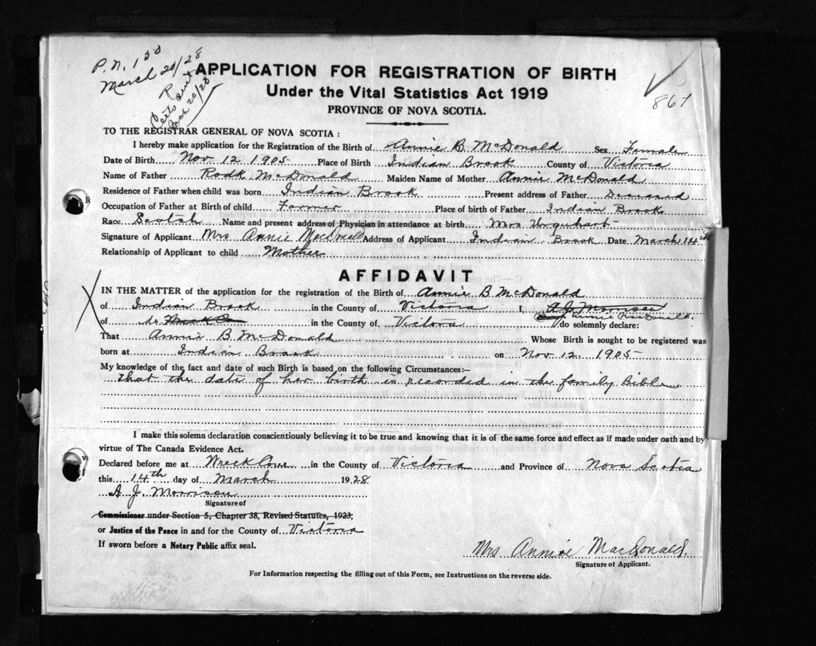 P.N. 150
March 20/28
867
APPLICATION FOR REGISTRATION OF BIRTH
Under the Vital Statistics Act 1919
PROVINCE OF NOVA SCOTIA.
TO THE REGISTRAR GENERAL OF NOVA SCOTIA:
I hereby make application for the Registration of the Birth of Annie B. McDonald Sex Female
Date of Birth Nov. 12 1905 Place of Birth Indian Brook County of Victoria
Name of Father Rodk McDonald Maiden Name of Mother Annie McDonald
Residence of Father when child was born Indian Brook Present address of Father Deceased
Occupation of Father at Birth of child Farmer Place of birth of Father Indian Brook
Race Scotch Name and present address of Physician in attendance at birth Mrs Urquhart
Signature of Applicant Mrs Annie MacDonald Address of Applicant Indian Brook Date March 14th
Relationship of Applicant to child Mother
AFFIDAVIT
IN THE MATTER of the application for the registration of the Birth of Annie B. McDonald
of Indian Brook in the County of Victoria I, A J Morrison
of in the County of Victora do solemnly declare:
That Annie B. McDonald Whose Birth is sought to be registered was
born at Indian Brook on Nov 12 1905
My knowledge of the fact and date of such Birth is based on the following Circumstances:—
that the date of her birth is recorded in the family Bible
I make this solemn declaration conscientiously believing it to be true and knowing that it is of the same force and effect as if made under oath and by
virtue of The Canada Evidence Act.
Declared before me at Wreck Cove in the County of Victoria and Province of Nova Scotia
this 14th day of March 1928
A. J. Morrison
Signature of
Commissioner under Section 5, Chapter 38, Revised Statutes, 1923,
or Justice of the Peace in and for the County of Victoria
If sworn before a Notary Public affix seal.
Mrs Annie MacDonald.
Signature of Applicant.
For Information respecting the filling out of this Form, see Instructions on the reverse side.